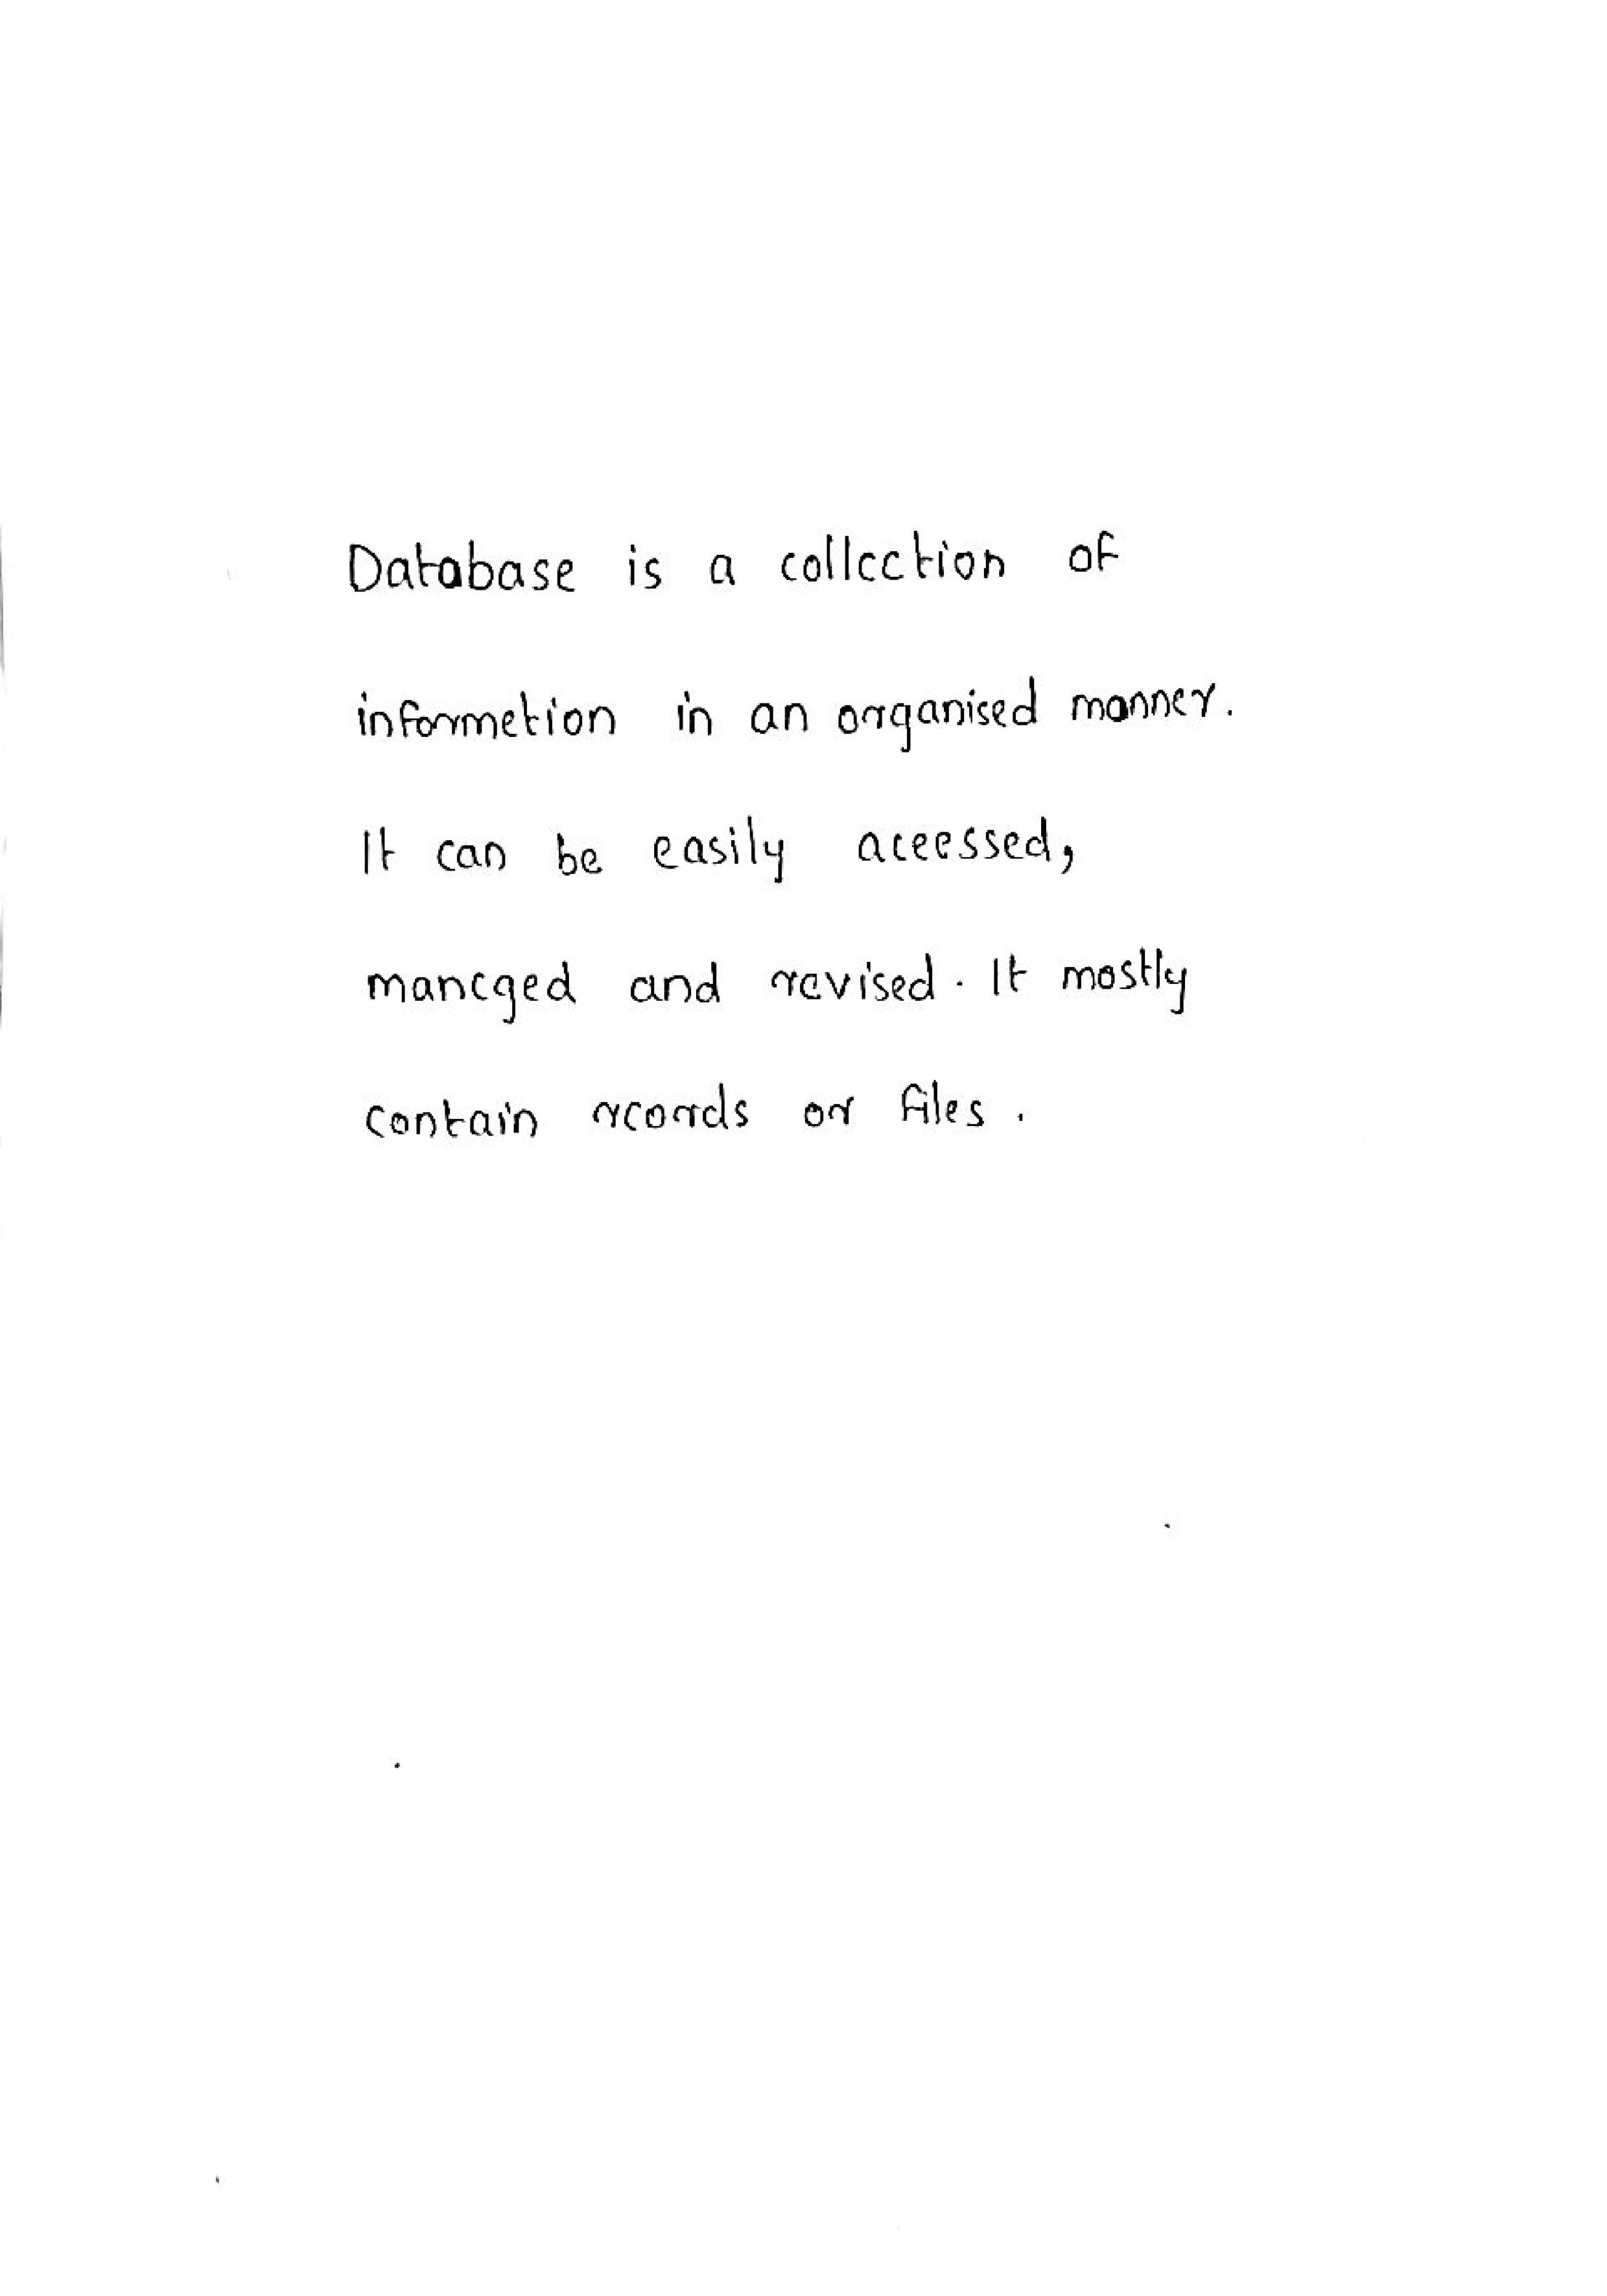 Database is a collcction of
informetion in an organised manner.
It can be easily aceessed,
mancged and revised. It mostly
contain rcords or files.